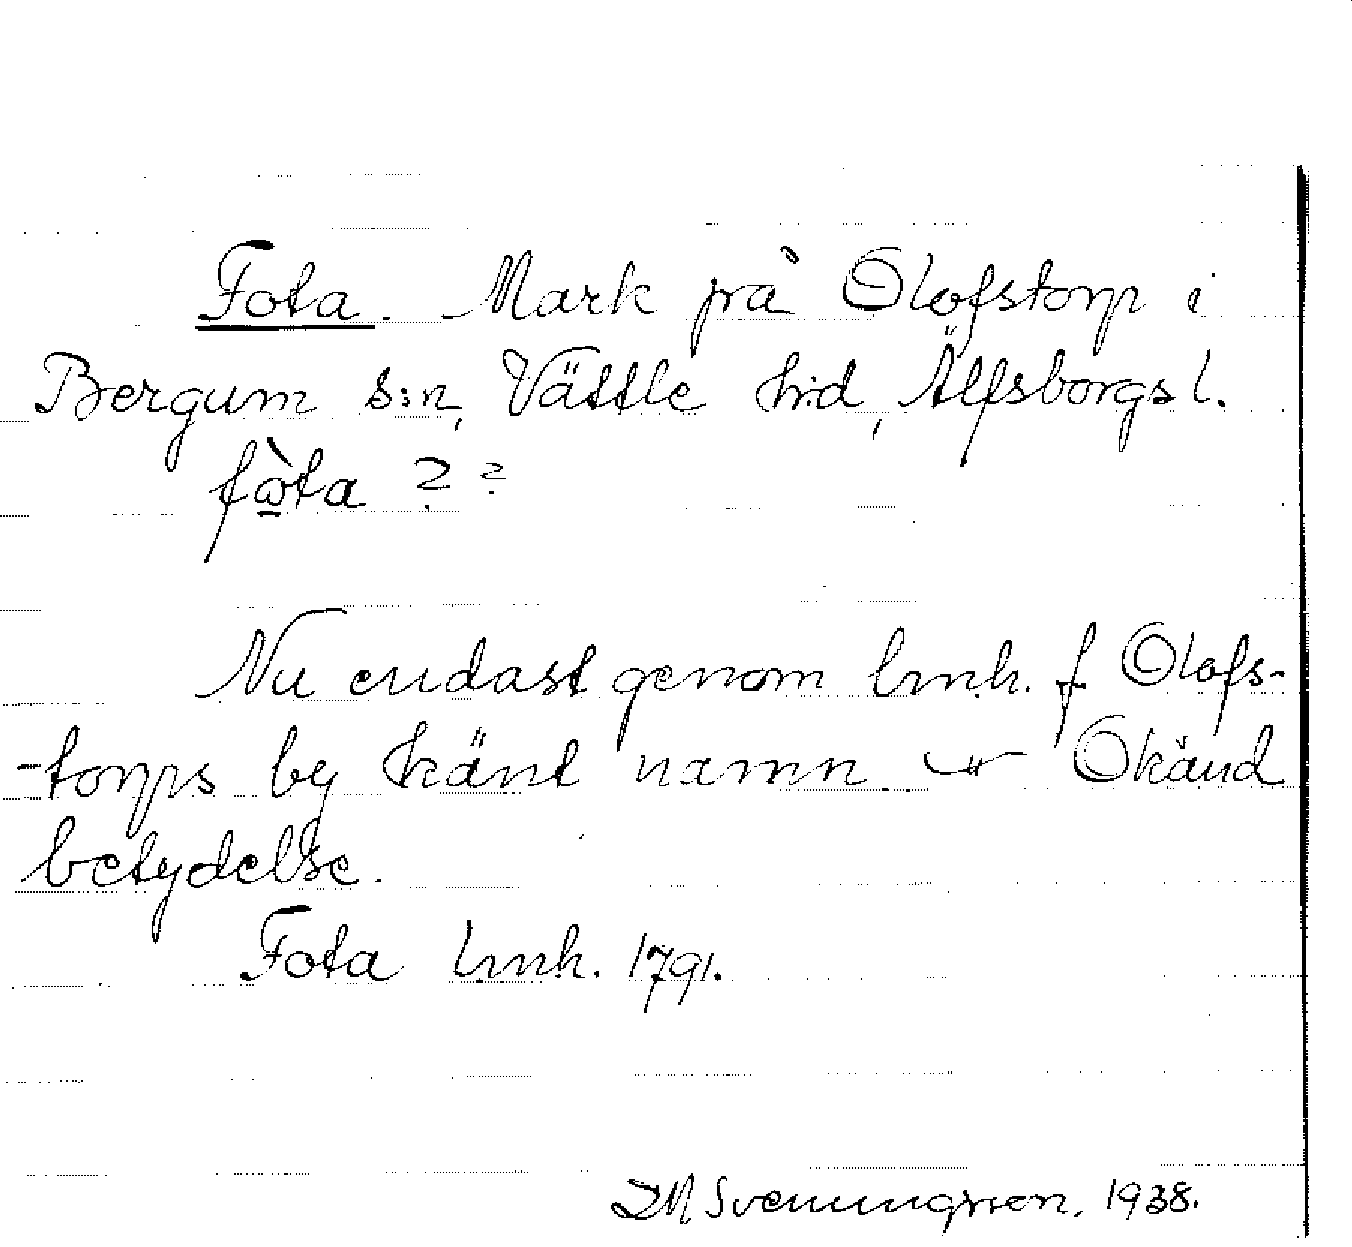 Fota. Mark på Olofstorp i
Bergum s:n, Vättle hrd, Älfsborgs l.
fòta ? ?
Nu endast genom lmh. f Olofs-
-torps by känt namn Okänd
betydelse.
Fota lmh. 1791.
Svenningsson. 1938.